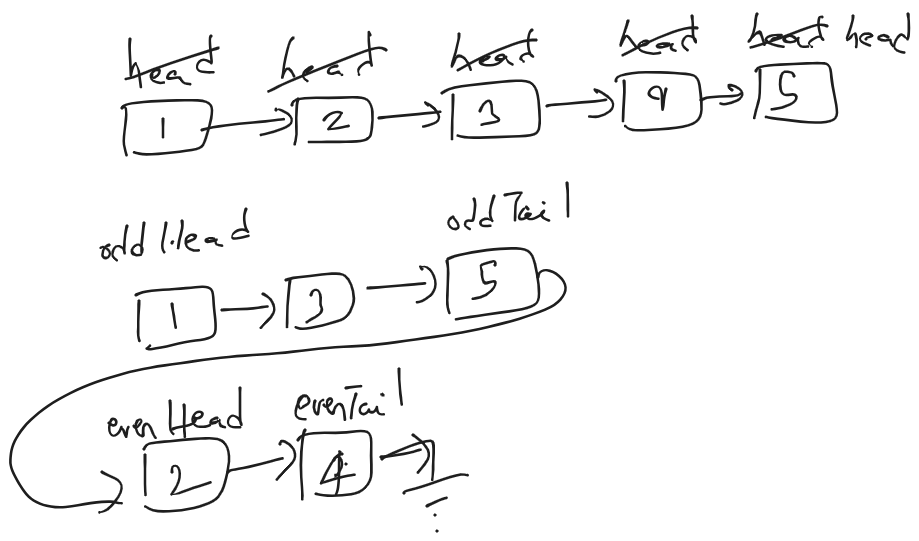 head head head head head head
1 2 3 4 5
oddHead oddTail
1 3 5
evenHead evenTail
2 4